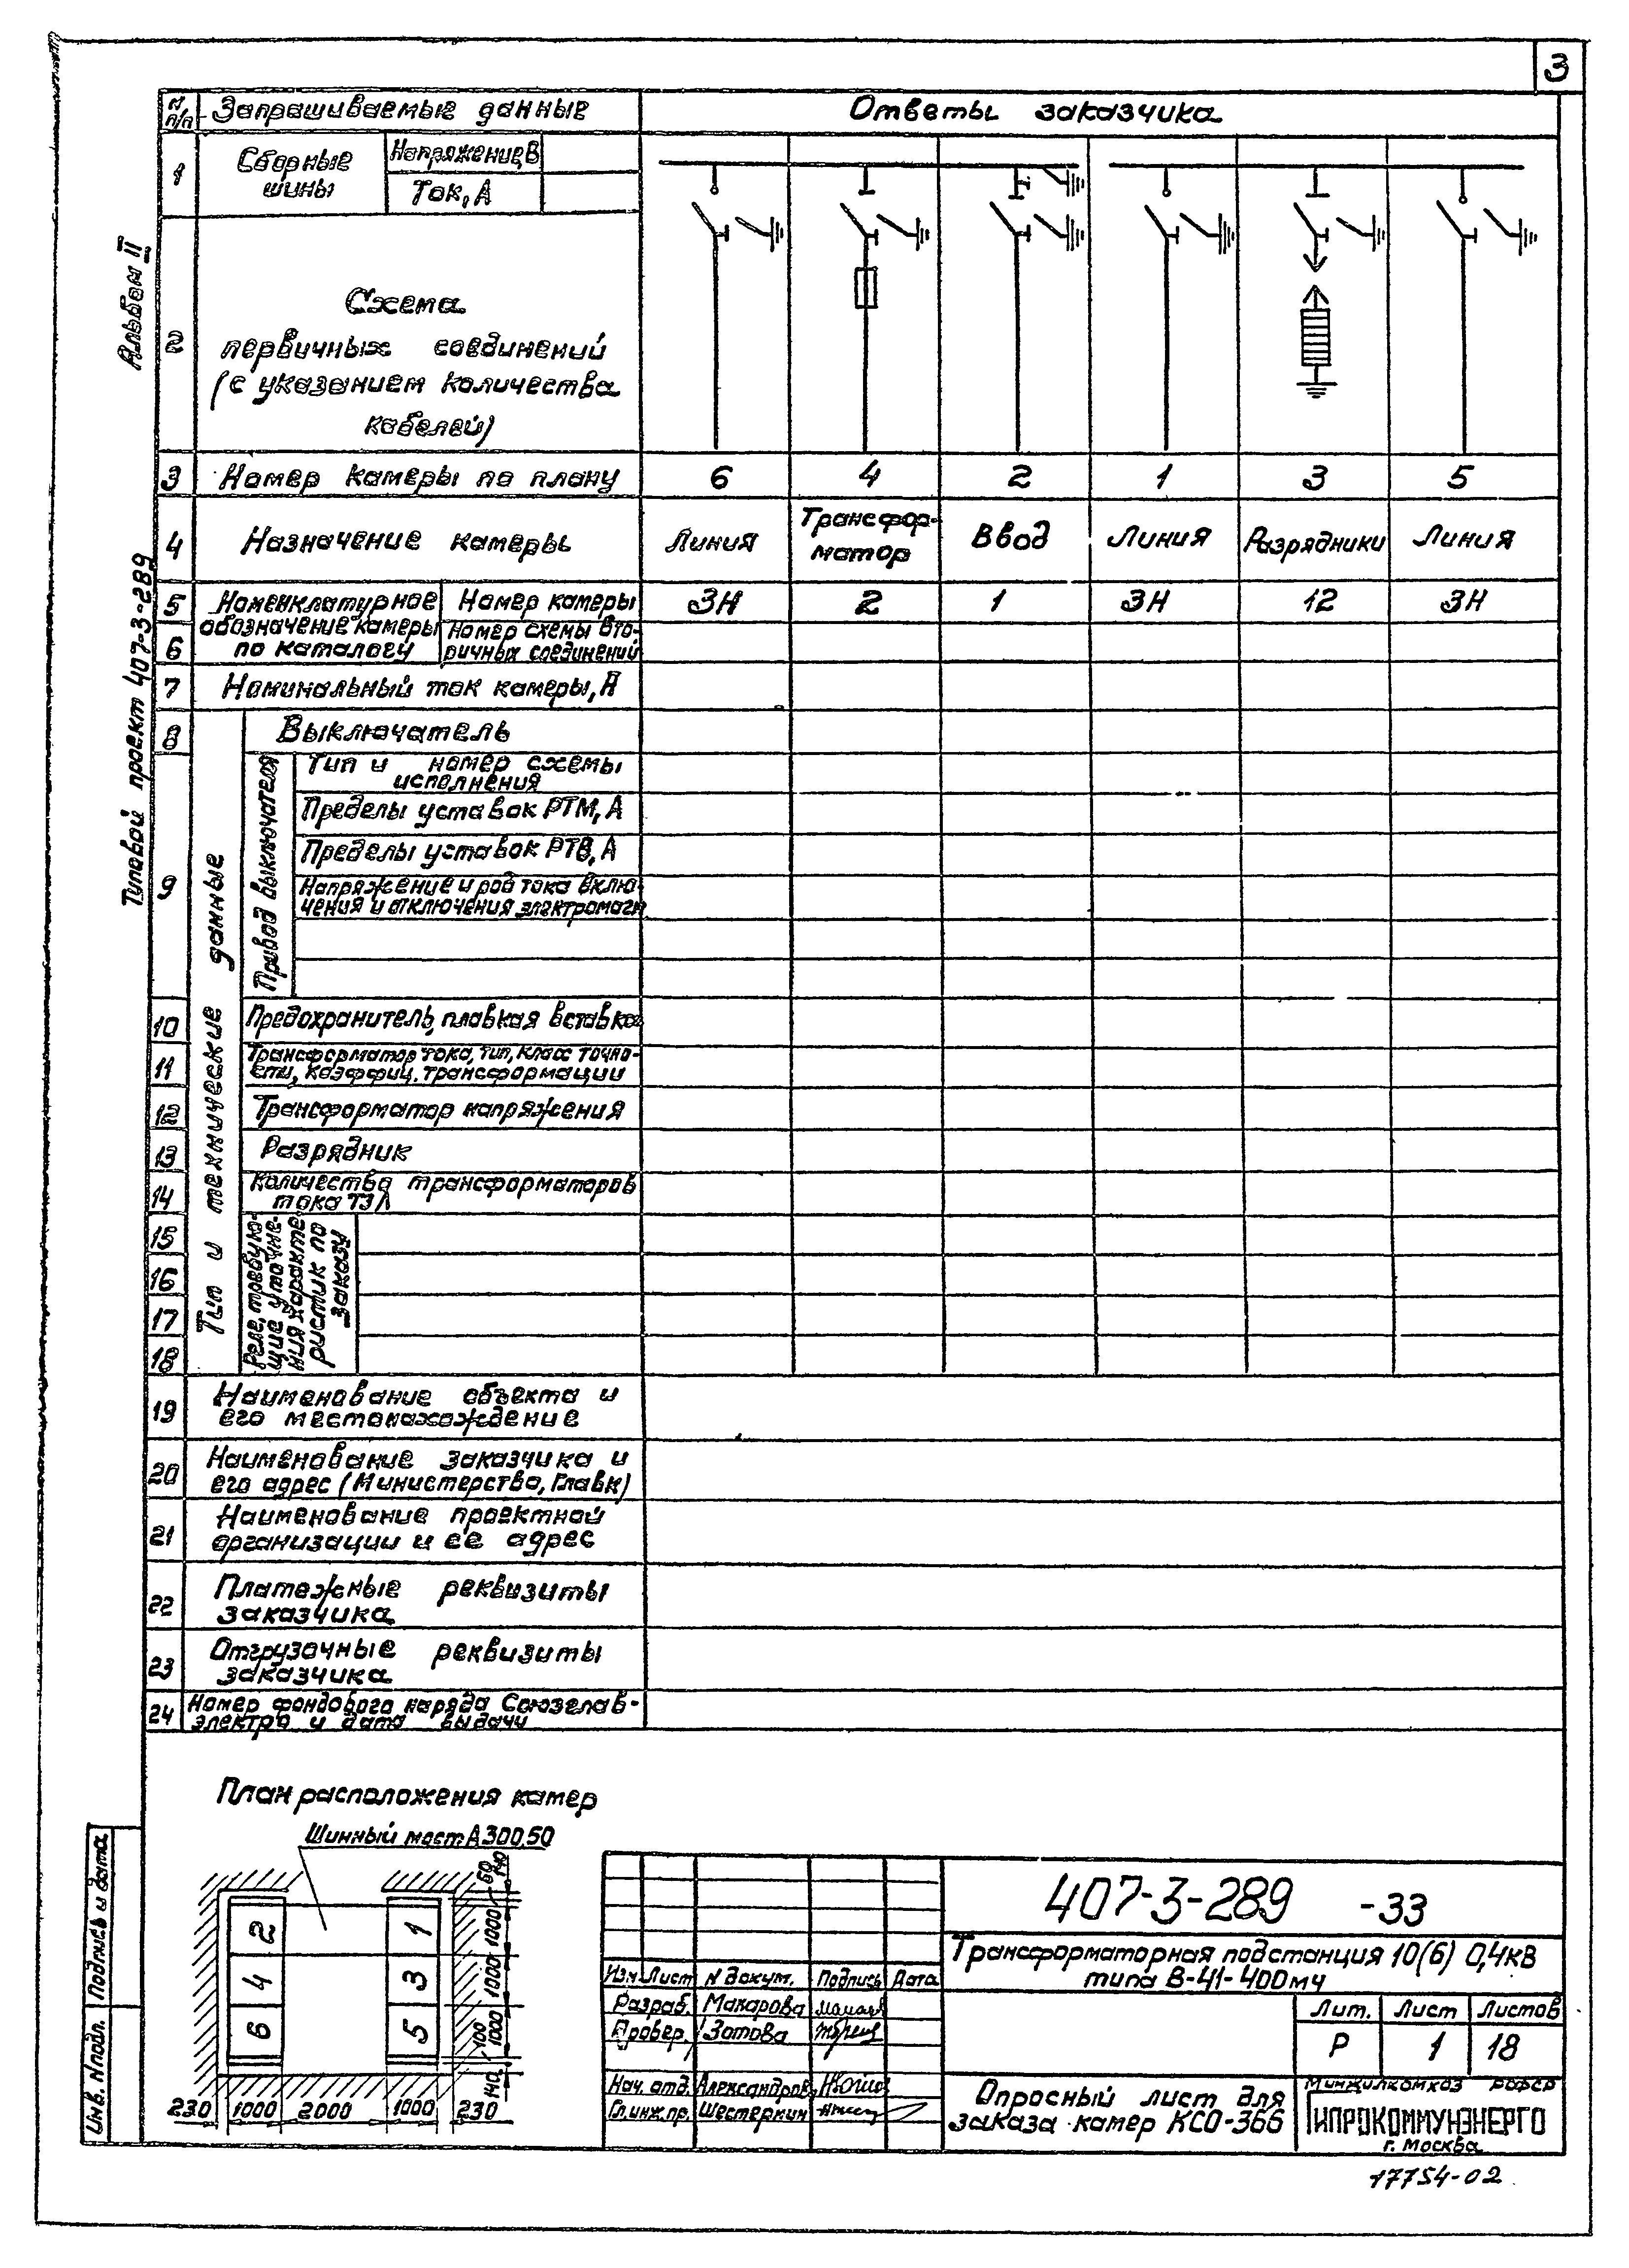 3
N п/п
Запрашиваемые данные
Ответы заказчика
1
Сборные
шины
Напряжение,В
Ток, А
2
Схема
первичных соединений
(с указанием количества
кабелей)
3
Номер камеры по плану
6
4
2
1
3
5
4
Назначение камеры
Линия
Трансфор-
матор
Ввод
Линия
Разрядники
Линия
5
Номенклатурное
обозначение камеры
по каталогу
Номер камеры
3Н
2
1
3Н
12
3Н
6
Номер схемы вто-
ричных соединений
7
Номинальный ток камеры, А
Тип и технические данные
8
Выключатель
9
Привод выключателя
Тип и номер схемы
исполнения
Пределы уставок РТМ, А
Пределы уставок РТВ, А
Напряжение и род тока вклю-
чения и отключения электромагн
10
Предохранитель, плавкая вставка
11
Трансформатор тока, тип, класс точно-
сти, коэффиц. трансформации
12
Трансформатор напряжения
13
Разрядник
14
Количества трансформаторов
тока ТЗЛ
15
16
17
18
Реле, требую-
щие уточне-
ния характе
ристик по
заказу
19
Наименование объекта и
его местонахождение
20
Наименование заказчика и
его адрес (Министерство, Главк)
21
Наименование проектной
организации и ее адрес
22
Платежные реквизиты
заказчика
23
Отгрузочные реквизиты
заказчика
24
Номер фондового наряда Союзглав-
электро и дата выдачи
Альбом II
Типовой проект 407-3-289
План расположения камер
Шинный мост А300.50
2
4
6
1
3
5
60
140
1000
1000
1000
100
140
230
1000
2000
1000
230
Инв. N подл.
Подпись и дата
407-3-289 -33
Трансформаторная подстанция 10(6) 0,4кВ
типа В-41-400м4
Изм
Лист
N докум.
Подпись
Дата
Разраб.
Макарова
Провер.
Зотова
Нач. отд.
Александров
Гл.инж.пр.
Шестеркин
Лит.
Лист
Листов
Р
1
18
Опросный лист для
заказа камер КСО-366
Минжилкомхоз РСФСР
ГИПРОКОММУНЭНЕРГО
г. Москва
17754-02